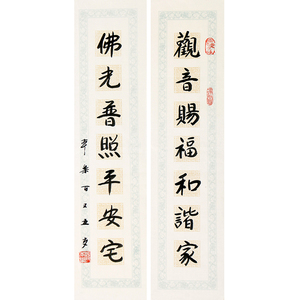 觀音賜福和諧家
佛光普照平安宅